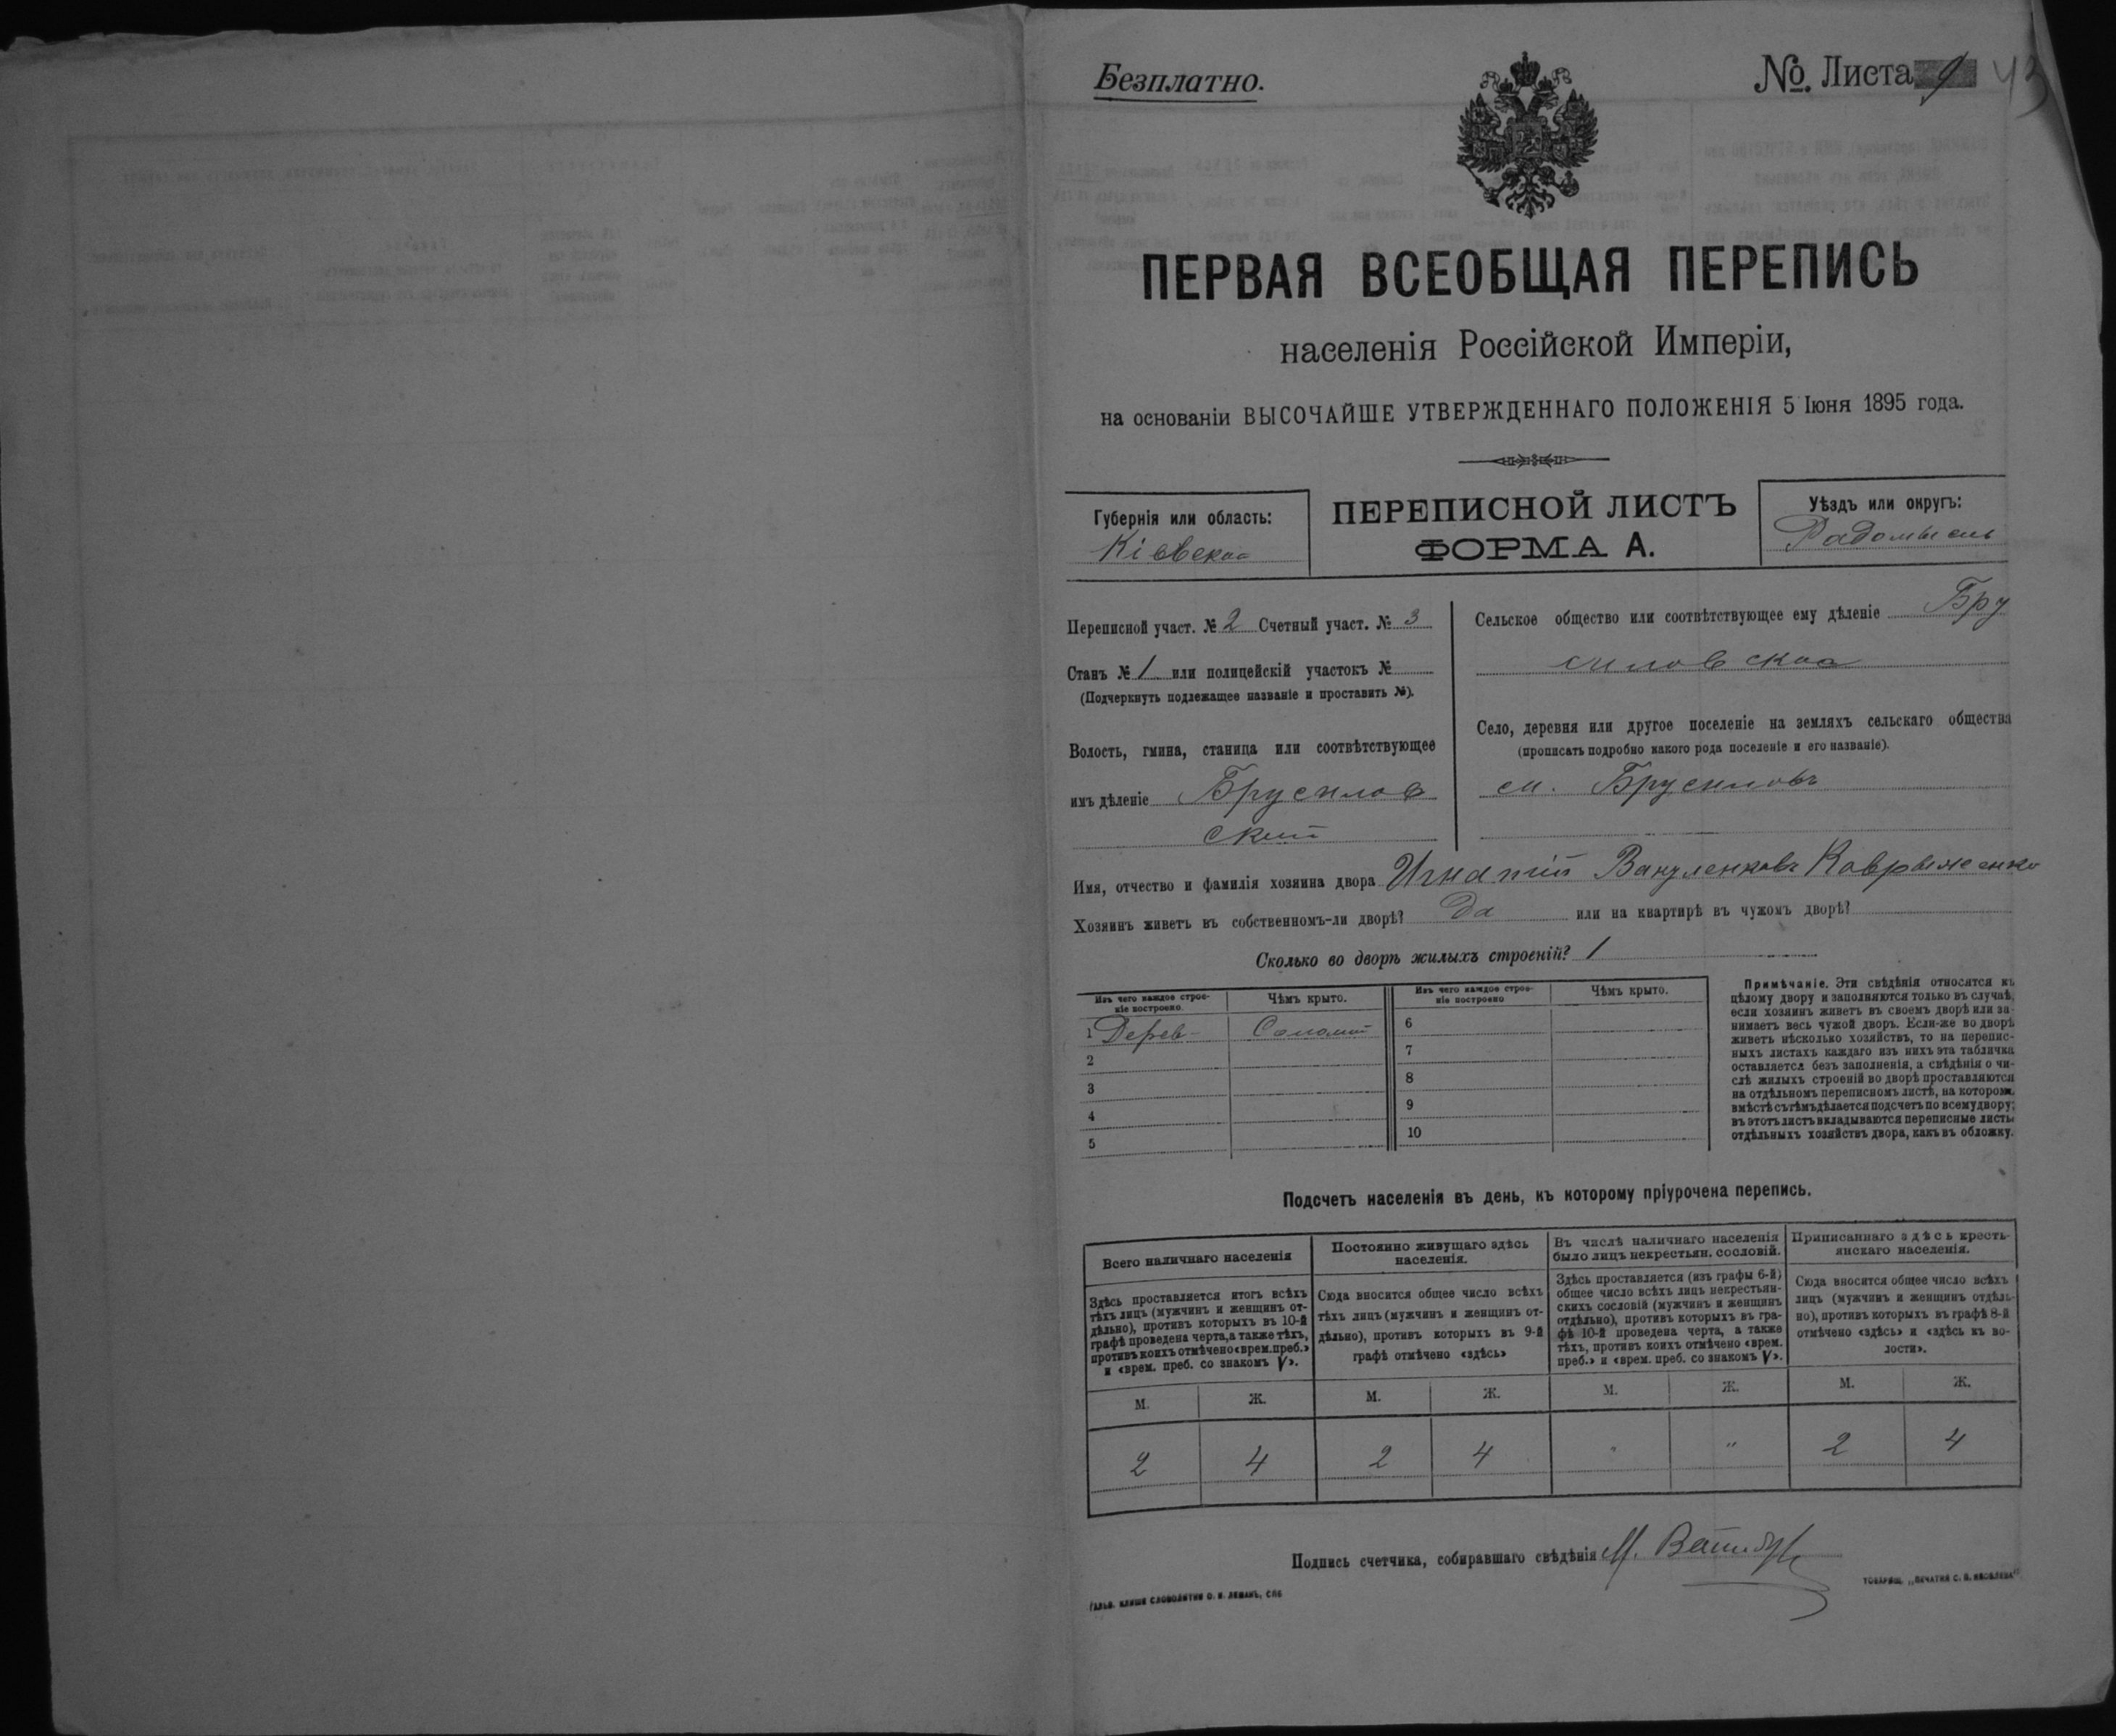 Безплатно.
№. Листа 9 43
ПЕРВАЯ ВСЕОБЩАЯ ПЕРЕПИСЬ
населенія Россійской Имперіи,
на основаніи ВЫСОЧАЙШЕ УТВЕРЖДЕННАГО ПОЛОЖЕНІЯ 5 Іюня 1895 года.
Губернія или область:
Кіевская
ПЕРЕПИСНОЙ ЛИСТЪ
ФОРМА А.
Уѣздъ или округъ:
Радомысль
Переписной участ. № 2 Счетный участ. № 3
Станъ № 1 или полицейскій участокъ №
(Подчеркнуть подлежащее названіе и проставить №).
Волость, гмина, станица или соотвѣтствующее
имъ дѣленіе Брусилов
ский
Сельское общество или соотвѣтствующее ему дѣленіе Бру
силовская
Село, деревня или другое поселеніе на земляхъ сельскаго общества
(прописать подробно какого рода поселеніе и его названіе).
м. Брусиловъ
Имя, отчество и фамилія хозяина двора Игнатій
Хозяинъ живетъ въ собственномъ-ли дворѣ? Да или на квартирѣ въ чужомъ дворѣ?
Сколько во дворѣ жилыхъ строеній? 1
Изъ чего каждое строе-
ніе построено.
Чѣмъ крыто.
Изъ чего каждое строе-
ніе построено
Чѣмъ крыто.
1 Дерев Солом 6
2 7
3 8
4 9
5 10
Примѣчаніе. Эти свѣдѣнія относятся къ
цѣлому двору и заполняются только въ случаѣ,
если хозяинъ живетъ въ своемъ дворѣ или за-
нимаетъ весь чужой дворъ. Если-же во дворѣ
живетъ нѣсколько хозяйствъ, то на перепис-
ныхъ листахъ каждаго изъ нихъ эта табличка
оставляется безъ заполненія, а свѣдѣнія о чи-
слѣ жилыхъ строеній во дворѣ проставляются
на отдѣльномъ переписномъ листѣ, на которомъ
вмѣстѣ съ тѣмъ дѣлается подсчетъ по всему двору;
въ этотъ листъ вкладываются переписные листы
отдѣльныхъ хозяйствъ двора, какъ въ обложку.
Подсчетъ населенія въ день, къ которому пріурочена перепись.
Всего наличнаго населенія
Здѣсь проставляется итогъ всѣхъ
тѣхъ лицъ (мужчинъ и женщинъ от-
дѣльно), противъ которыхъ въ 10-й
графѣ проведена черта, а также тѣхъ,
противъ коихъ отмѣчено «врем. преб.»
и «врем. преб. со знакомъ V».
Постоянно живущаго здѣсь
населенія.
Сюда вносится общее число всѣхъ
тѣхъ лицъ (мужчинъ и женщинъ от-
дѣльно), противъ которыхъ въ 9-й
графѣ отмѣчено «здѣсь»
Въ числѣ наличнаго населенія
было лицъ некрестьян. сословій.
Здѣсь проставляется (изъ графы 6-й)
общее число всѣхъ лицъ некрестьян-
скихъ сословій (мужчинъ и женщинъ
отдѣльно), противъ которыхъ въ гра-
фѣ 10-й проведена черта, а также
тѣхъ, противъ коихъ отмѣчено «врем.
преб.» и «врем. преб. со знакомъ V».
Приписаннаго здѣсь кресть-
янскаго населенія.
Сюда вносится общее число всѣхъ
лицъ (мужчинъ и женщинъ отдѣль-
но), противъ которыхъ въ графѣ 8-й
отмѣчено «здѣсь» и «здѣсь къ во-
лости».
М. Ж. М. Ж. М. Ж. М. Ж.
2 4 2 4 " " 2 4
Подпись счетчика, собиравшаго свѣдѣнія М.
ГАЛЬВ. КЛИШЕ СЛОВОЛИТНИ О. И. ЛЕМАНЪ, СПБ
ТОВАРИЩ. „ПЕЧАТНЯ С. П. ЯКОВЛЕВА"